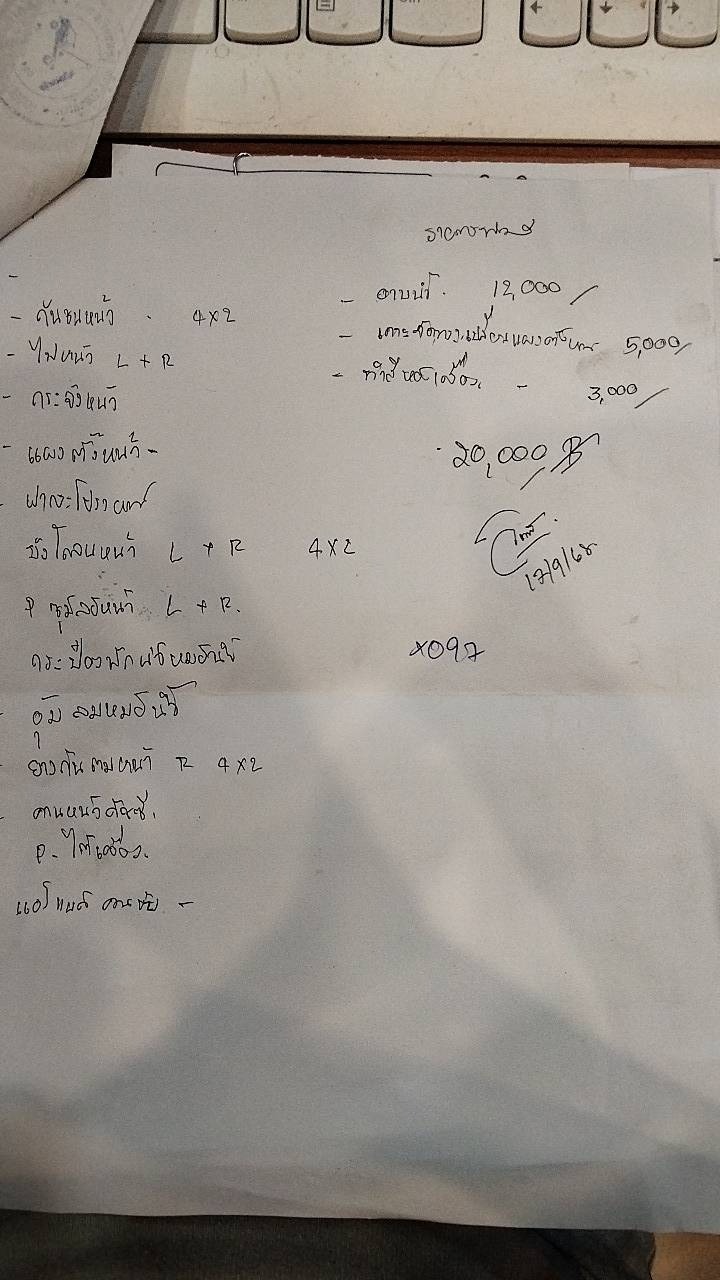 - กันชนหน้า 4x2
- ไฟหน้า L + R
- กระจังหน้า
- แผงตั้งหน้า -
บังโคลนหน้า L + R 4x2
P ซุ้มล้อหน้า L + R.
กระป๋องพักน้ำหม้อน้ำ
อุ้มลมหม้อน้ำ
ยางกันโคลนหน้า R 4x2
คานหน้าคัชซี.
P. ใต้เครื่อง.
แอร์แบค คนขับ -
รายการซ่อม
- อาบน้ำ. 12,000
- เคาะ เปลี่ยนแผงตั้งหน้า 5,000
- ทำสีห้องเครื่อง. - 3,000
20,000 ฿
17/9/68
x097